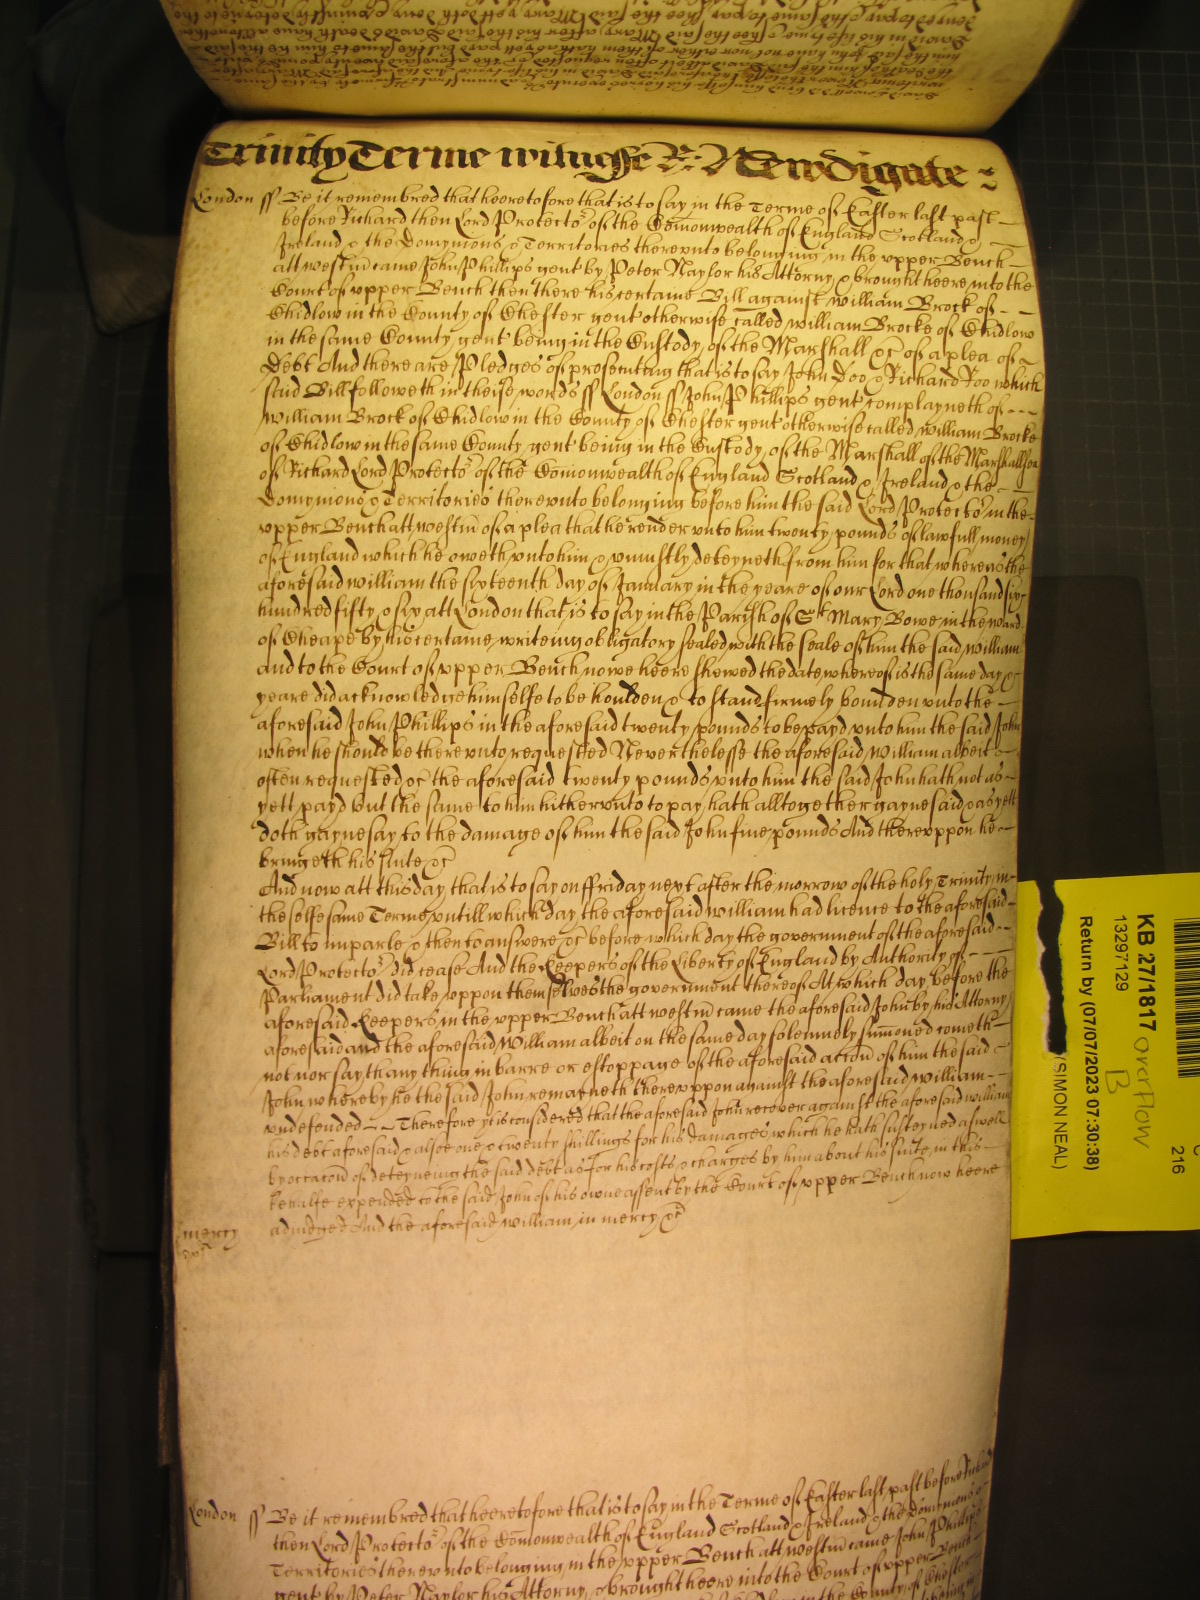 Trinity Terme witnesse R: Newdigate
London ss Be it remembred that heeretofore that is to say in the Terme of Easter last past
before Richard then Lord Protector of the Comonwealth of England Scotland &
Ireland & the Domynions & Territories thereunto belonging in the upper Bench
att Westm came John Phillips gent by Peter Naylor his Attorny & brought heere into the
Court of upper Bench then there his certaine Bill against William Brock of
Chidlow in the County of Chester gent otherwise called William Brocke of Chidlow
in the same County gent being in the Custody of the Marshall &c of a plea of
Debt And there are Pledges of prosecuting that is to say John Doo & Richard Roo which
said Bill followeth in theise words ss London ss John Phillips gent complayneth of
William Brock of Chidlow in the County of Chester gent otherwise called William Brocke
of Chidlow in the same County gent being in the Custody of the Marshall of the Marshallsea
of Richard Lord Protector of the Comonwealth of England Scotland & Ireland & the
Domynions & Territories thereunto belonging before him the said Lord Protector in the
upper Bench att Westm of a plea that he render unto him twenty pounds of lawfull money
of England which he oweth unto him & uniustly deteyneth from him for that whereas the
aforesaid William the sixteenth day of January in the yeare of our Lord one thousand six
hundred fifty & six att London that is to say in the Parish of St Mary Bowe in the ward
of Cheape by his certaine writeing obligatory sealed with the seale of him the said William
and to the Court of upper Bench nowe heere shewed the date whereof is the same day &
yeare did acknowledge himselfe to be houlden & to stand firmely bounden unto the
aforesaid John Phillips in the aforesaid twenty pounds to be payd unto him the said John
when he should be thereunto requested Neverthelesse the aforesaid William albeit
often requested &c the aforesaid twenty pounds unto him the said John hath not as
yett payd but the same to him hitherunto to pay hath alltogether gaynesaid & as yett
doth gaynesay to the damage of him the said John five pounds And thereuppon he
bringeth his suite &c
And now att this day that is to say on ffriday next after the morrow of the holy Trinity in
the selfe same Terme untill which day the aforesaid William had licence to the aforesaid
Bill to imparle & then to answere &c before which day the government of the aforesaid
Lord Protector did cease And the Keepers of the Liberty of England by Authority of
Parliament did take uppon themselves the government thereof At which day before the
aforesaid Keepers in the upper Bench att westm came the aforesaid John by his Attorny
aforesaid and the aforesaid William albeit on the same day solemnly sumoned cometh
not nor sayth any thing in barre or estoppage of the aforesaid action of him the said
John whereby he the said John remayneth thereuppon against the aforesaid William
undefended Therefore yt is considered that the aforesaid John recover against the aforesaid William
his debt aforesaid & alsoe one & twenty shillings for his damages which he hath susteyned aswell
by occacon of deteyneing the said debt as for his costs & charges by him about his suite in this
behalfe expended to the said John of his owne assent by the Court of upper Bench now heere
mercy
adiudged And the aforesaid William in mercy &c
London ss Be it remembred that heeretofore that is to say in the Terme of Easter last past before Richard
then Lord Protector of the Comonwealth of England Scotland & Ireland & the Domynions &
Territories thereunto belonging in the upper Bench att westm came John Phillips
gent by Peter Naylor his Attorny & brought heere into the Court of upper Bench
KB 27/1817 overflow
B
13297129
Return by (07/07/2023 07:30:38)
(SIMON NEAL)
216